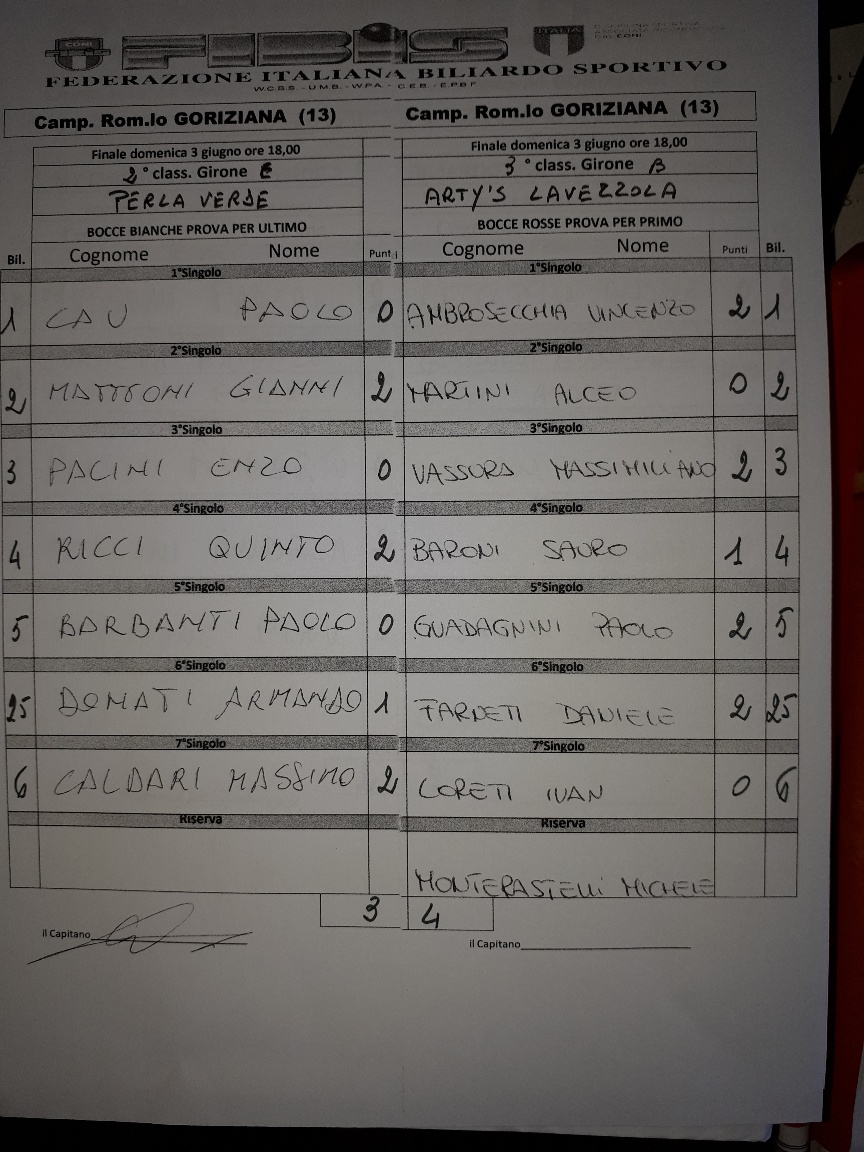 CONI FIBiS ITALIA
FEDERAZIONE ITALIANA BILIARDO SPORTIVO
W.C.B.S. - U.M.B. - W.P.A. - C.E.B. - E.P.B.F
Camp. Rom.lo GORIZIANA (13) Camp. Rom.lo GORIZIANA (13)
Finale domenica 3 giugno ore 18,00 Finale domenica 3 giugno ore 18,00
2° class. Girone E 3° class. Girone B
PERLA VERDE ARTY'S LAVEZZOLA
BOCCE BIANCHE PROVA PER ULTIMO BOCCE ROSSE PROVA PER PRIMO
Bil. Cognome Nome Punti Cognome Nome Punti Bil.
1°Singolo 1°Singolo
1 CAU PAOLO 0 AMBROSECCHIA VINCENZO 2 1
2°Singolo 2°Singolo
2 MATTEONI GIANNI 2 MARTINI ALCEO 0 2
3°Singolo 3°Singolo
3 PACINI ENZO 0 VASSURA MASSIMILIANO 2 3
4°Singolo 4°Singolo
4 RICCI QUINTO 2 BARONI SAURO 1 4
5°Singolo 5°Singolo
5 BARBANTI PAOLO 0 GUADAGNINI PAOLO 2 5
6°Singolo 6°Singolo
25 DONATI ARMANDO 1 FARNETI DANIELE 2 25
7°Singolo 7°Singolo
6 CALDARI MASSIMO 2 LORETI IVAN 0 6
Riserva Riserva
MONTERASTELLI MICHELE
3 4
il Capitano il Capitano